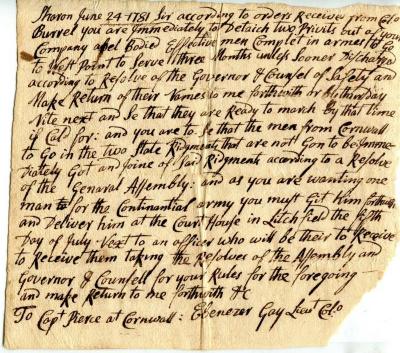 Sharon June 24 1781 Sir according to orders Receive from Colo
Burrel you are Immediately to Detatch two Privits out of your
Company abel Bodied Effective men Complet in armes to Go
to West Point to Serve three Months unless Sooner Discharg
according to Resolve of the Governor & Counsel of Safety and
Make Return of their Names to me forthwith or by thirsday
Nite next and Se that they are Ready to march By that time
if Cal for: and you are to Se that the men from Cornwall
to Go in the two State Rigments that are not Gon to be Imme-
diately Got and Joine of Said Ridgments according to a Resolve
of the Genaral Assembly: and as you are wanting one
man for the Continantial army you must Git him forthwith
and Deliver him at the Court House in Litchfield the fifth
Day of July Next to an officer who will be their to Receive
to Receive them taking the Resolves of the Assembly and
Governor & Counsell for your Rules for the foregoing
and make Return to me forthwith &c
To Capt Pierce at Cornwall: Ebenezer Gay Lieut Colo